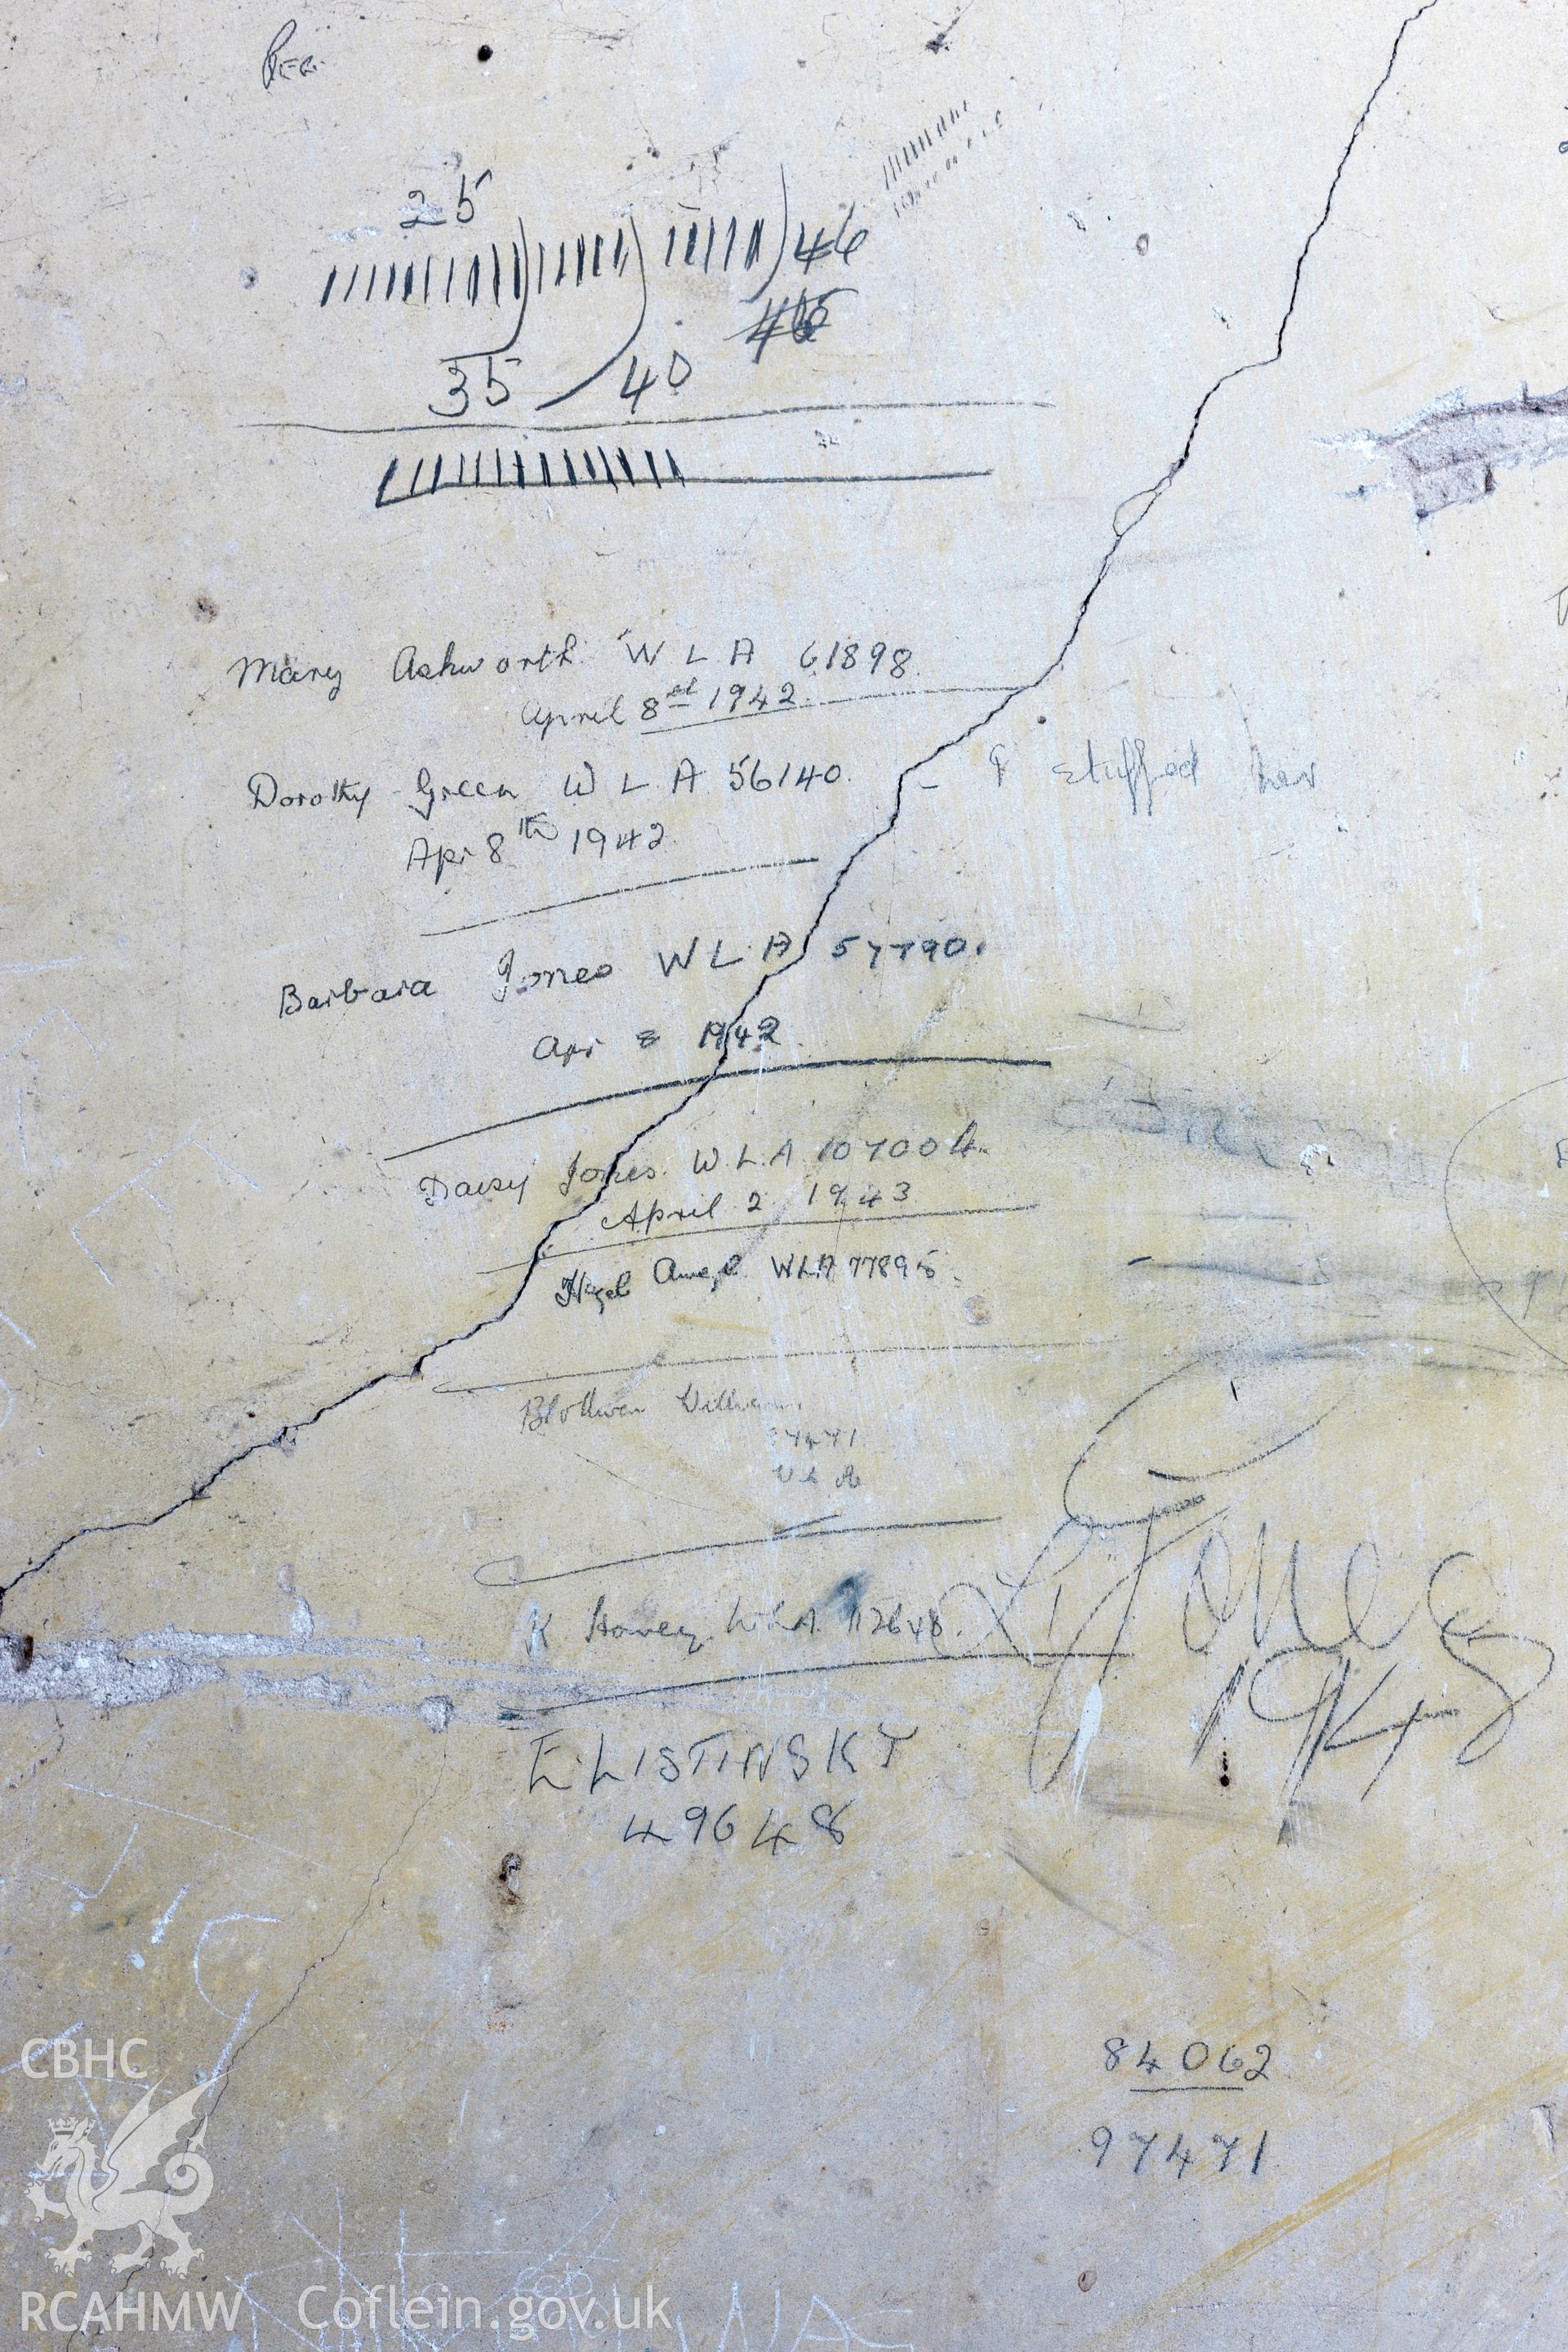 25
46
35 40
Mary Ashworth W L A 61898.
April 8th 1942.
Dorothy Green W L A 56140. - I stuffed her
Apr 8th 1942.
Barbara Jones W L A 57790.
Apr 8 1942.
Daisy Jones. W.L.A 107004.
April 2 1943
Hazel WLA 77895.
Williams
W L A
K Harvey. W.L.A.
Jones
E. LISTINSKY
49648
84062
97471
CBHC
RCAHMW Coflein.gov.uk